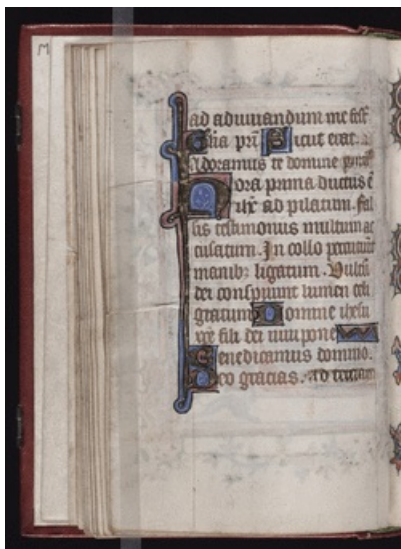 M
ad adiuuandum me fest
Gl̃ia pr̃i Sicut erat.
Adoramus te domine
Hora prima ductus ẽ
ih̃c ad pilatum. fal
sis testimoniis multum ac
cusatum. In collo percutiũt
manibꝫ ligatum. Vultũ
dei conspuunt lumen celi
gratum Domine ihesu
xp̃e fili dei uiui pone
Benedicamus domino.
Deo gracias. ad terciam